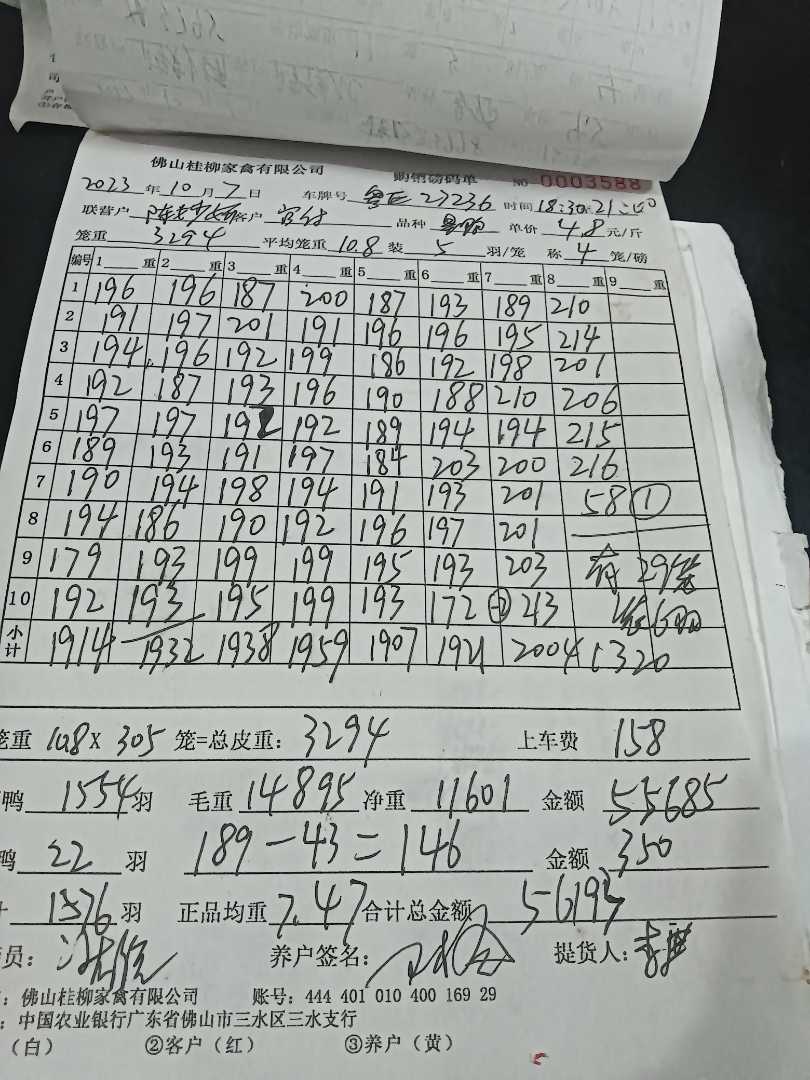 佛山桂柳家禽有限公司 购销磅码单 NO 0003588
2023 年 10 月 7 日 车牌号 27236 时间 18:30
联营户 客户 品种 单价 4.8 元/斤
笼重 3294 平均笼重 10.8 装 5 羽/笼 称 4 笼/磅
编号 1 重 2 重 3 重 4 重 5 重 6 重 7 重 8 重 9 重
1 196 196 187 200 187 193 189 210
2 191 197 201 191 196 196 195 214
3 194 196 192 199 186 192 198 201
4 192 187 193 196 190 188 210 206
5 197 197 192 192 189 194 194 215
6 189 193 191 197 184 203 200 216
7 190 194 198 194 191 193 201 58 ①
8 194 186 190 192 196 197 201
9 179 193 199 199 195 193 203
10 192 193 195 199 193 172 213
小计 1914 1932 1938 1959 1907 1921 2004 1320
笼重 10.8 X 305 笼=总皮重: 3294 上车费 158
鸭 1554 羽 毛重 14895 净重 11601 金额 55685
鸭 22 羽 189-43=146 金额 350
1576 羽 正品均重 7.47 合计总金额 56193
员: 养户签名: 提货人:
: 佛山桂柳家禽有限公司 账号: 444 401 010 400 169 29
: 中国农业银行广东省佛山市三水区三水支行
(白) ②客户(红) ③养户(黄)